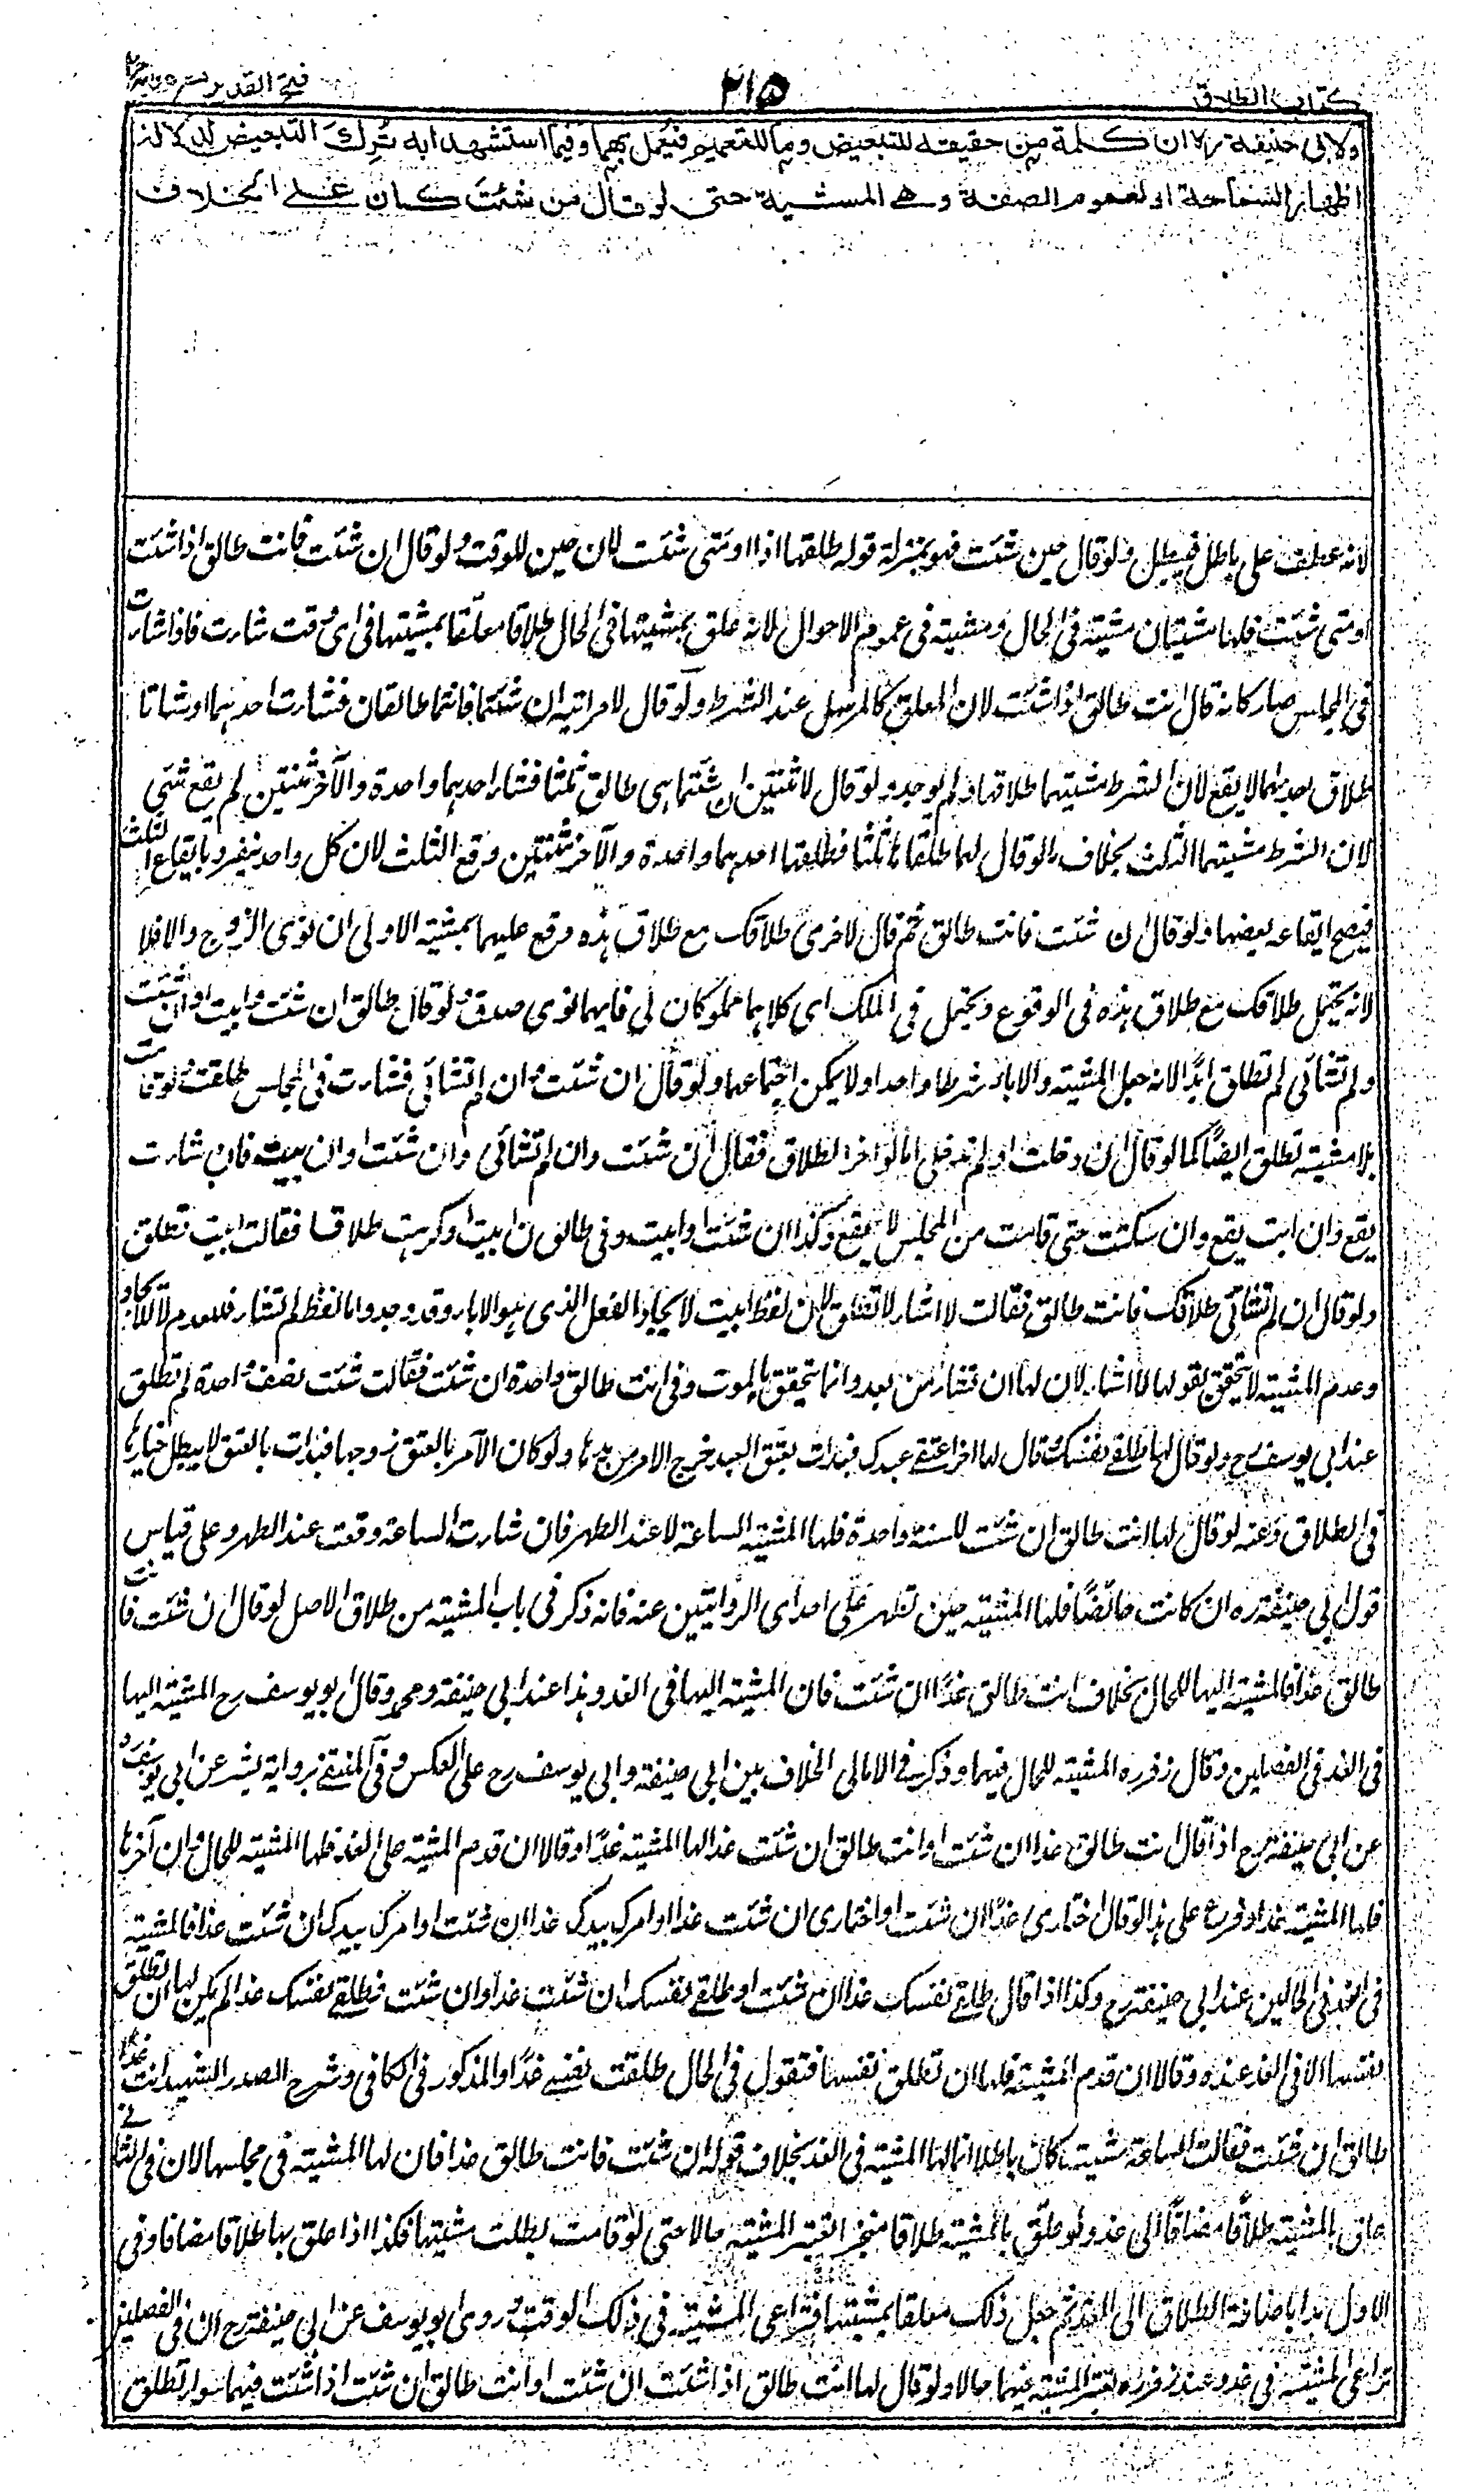 كتاب الطلاق
٢١٥
فتح القدير مع هدايه
ولابي حنيفة رح ان كلمة من حقيقة للتبعيض وما للتعميم فيعمل بهما وفيما استشهدا به ترك التبعيض لدلالة
اظهار السماحة او لعموم الصفة وهي المشية حتى لو قال من شئت كان على الخلاف
لانه عطف على باطل فيبطل ولو قال حين شئت فهو بمنزلة قوله طلقها اذا او متى شئت لان حين للوقت ولو قال ان شئت فانت طالق اذا شئت
او متى شئت فلها مشيتان مشية في الحال ومشية في عموم الاحوال لانه علق بمشيتها في الحال طلاقا معلقا بمشيتها في اى وقت شاءت فاذا شاءت
في المجلس صار كانه قال انت طالق اذا شئت لان المعلق كالمرسل عند الشرط ولو قال لامراتيه ان شئتما فانتما طالقان فشاءت احدىهما او شاءتا
طلاق احدىهما لا يقع لان الشرط مشيتهما طلاقهما ولم يوجد ولو قال لاثنتين ان شئتما هي طالق ثلثا فشاء احدهما واحدة والآخر ثنتين لم يقع شئ
لان الشرط مشيتهما الثلث بخلاف ما لو قال لهما طلقاها ثلثا فطلقها احدهما واحدة والآخر ثنتين وقع الثلث لان كل واحد ينفرد بايقاع الثلث
فيصح ايقاعه بعضها ولو قال ان شئت فانت طالق ثم قال لاخرى طلاقك مع طلاق هذه وقع عليهما بمشية الاولى ان نوى الزوج والا فلا
لانه يحتمل طلاقك مع طلاق هذه في الوقوع ويحتمل في الملك اى كلاهما مملوكان لي فايهما نوى صدق ولو قال طالق ان شئت وابيت او ان شئت
ولم تشائى لم تطلق ابدًا لانه جعل المشية والاباء شرطا واحدا ولا يمكن اجتماعهما ولو قال ان شئت وان لم تشائى فشاءت في المجلس طلقت ولو قامت
بلا مشية تطلق ايضًا كما لو قال ان دخلت او لم تدخلي اما لو اخر الطلاق فقال ان شئت وان لم تشائى وان شئت وان ابيت فان شاءت
يقع وان ابت يقع وان سكتت حتى قامت من المجلس لا يقع وكذا ان شئت او ابيت وفي طالق ان ابيت او كرهت طلاقا فقالت ابيت تطلق
ولو قال ان لم تشائى طلاقك فانت طالق فقالت لا اشاء لا تطلق لان لفظ ابيت لايجاد الفعل الذى هو الاباء وقد وجد واما لفظ لم تشاء فللعدم لا للايجاد
وعدم المشية لا يتحقق بقولها لا اشاء لان لها ان تشاء من بعد وانما يتحقق بالموت وفي انت طالق واحدة ان شئت فقالت شئت نصف واحدة لم تطلق
عند ابى يوسف رح ولو قال لها طلقي نفسك وقال لها اخر اعتقي عبدك فبدات بعتق العبد خرج الامر من يدها ولو كان الآمر بالعتق زوجها فبدات بالعتق لا يبطل خيارها
في الطلاق وعنه لو قال لها انت طالق ان شئت للسنة واحدة فلها المشية الساعة لا عند الطهر فان شاءت الساعة وقعت عند الطهر وعلى قياس
قول ابي حنيفة ره ان كانت حائضًا فلها المشية حين تطهر على احدى الروايتين عنه فانه ذكر في باب المشية من طلاق الاصل لو قال ان شئت فانت
طالق غدا فالمشية اليها للحال بخلاف انت طالق غدًا ان شئت فان المشية اليها في الغد وهذا عند ابي حنيفة ومحمد وقال ابو يوسف رح المشية اليها
في الغد في الفصلين وقال زفر ره المشية للحال فيهما وذكر في الامالي الخلاف بين ابي حنيفة وابي يوسف رح على العكس وفي المنتقى برواية بشر عن ابي يوسف
عن ابي حنيفة رح اذا قال انت طالق غدا ان شئت او انت طالق ان شئت غدا لها المشية غدًا وقالا ان قدم المشية على الغد فلها المشية للحال وان آخرها
فلها المشية غدا وفرع على هذا لو قال اختارى غدًا ان شئت او اختارى ان شئت غدا او امرك بيدك غدا ان شئت او امرك بيدك ان شئت غدا فالمشية
في الغد في الحالين عند ابي حنيفة رح وكذا اذا قال طلقي نفسك غدا ان شئت او طلقي نفسك ان شئت غدا وان شئت فطلقي نفسك غدا لم يكن لها ان تطلق
نفسها الا في الغد عنده وقالا ان قدم المشية فلها ان تطلق نفسها فتقول في الحال طلقت نفسي غدًا والمذكور في الكافى وشرح الصدر الشهيد انت غدًا
طالق ان شئت فقالت الساعة شئت كان باطلا انما لها المشية في الغد بخلاف قوله ان شئت فانت طالق غدا فان لها المشية في مجلسها لان في الثانى
علق بالمشية طلاقًا مضافًا الى غد ولو علق بالمشية طلاقا منجزا تعتبر المشية حالا حتى لو قامت بطلت مشيتها فكذا اذا علق بها طلاقا مضافا وفى
الاول بدا باضافة الطلاق الى الغد ثم جعل ذلك معلقا بمشيتها فتراعى المشية في ذلك الوقت وروى ابو يوسف عن ابي حنيفة رح ان في الفصلين
تراعى المشية في غد وعند زفر ره تعتبر المشية فيهما حالا ولو قال لها انت طالق اذا شئت ان شئت او انت طالق ان شئت اذا شئت فهما سواء تطلق